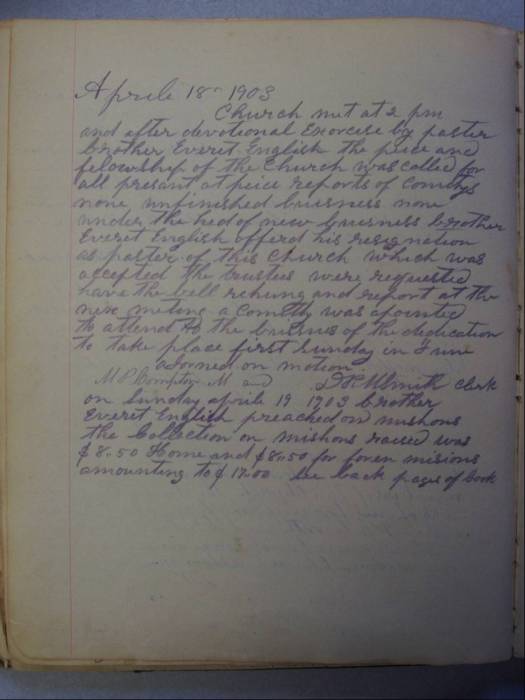 Aprile 18 - 1903
Church met at 2 pm
and after devotional Exorcise by paster
brother Everet English the peice and
felowship of the Church was called for
all presant at peice reports of Comitys
none unfinished buisness none
under the hed of new buisness brother
Everet English offerd his resignation
as paster of this Church which was
accepted the trustees were requested
have the bell rehung and report at the
nex meting a comitty was apointed
to attend to the buisnes of the dedication
to take place first Sunday in June
adorned on motion
M P Compton M and Smith clerk
on Sunday aprile 19 1903 brother
Everet English preached on mishons
the Collection on mishons raised was
$8.50 Home and $8.50 for foren misions
amounting to $17.00 See back pages of book